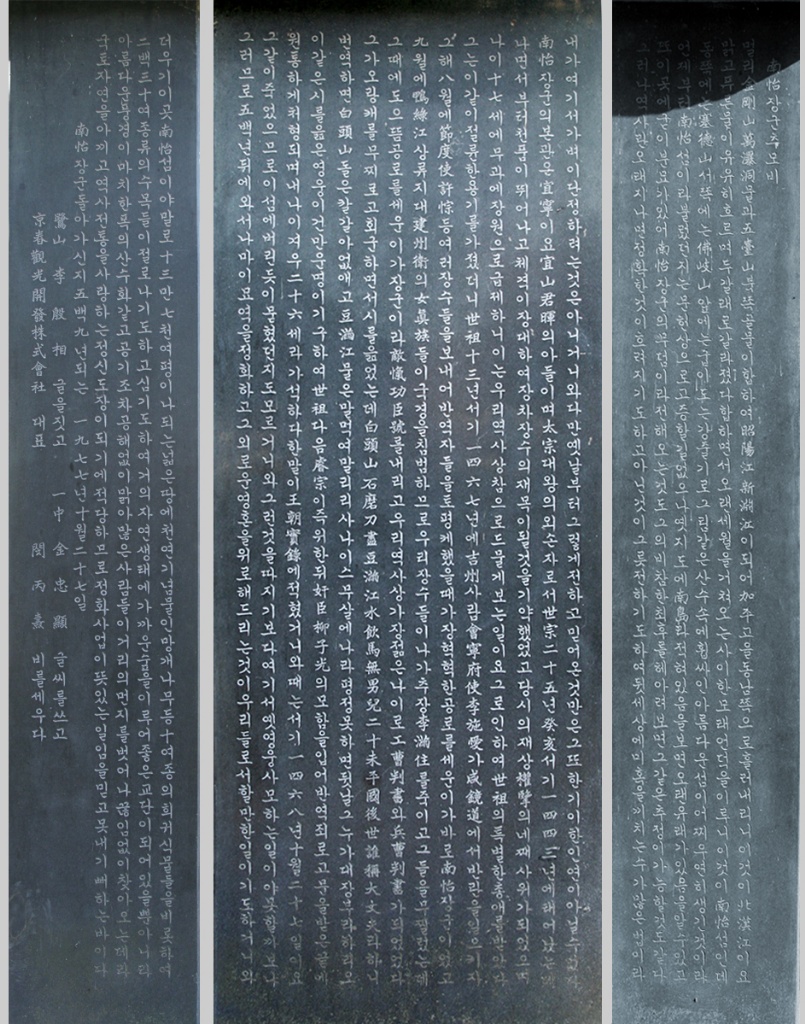 南怡장군추모비
멀리 金剛山 萬瀑洞물과 五臺山 북쪽골물이 합하여 昭陽江 新淵江이 되어 加平고을 동남쪽으로 흘러내리니 이것이 北漢江이요
맑고 푸른물이 유유히 흐르며 두갈래로 갈라졌다 합하면서 오랜세월을 거쳐오는 사이 한 모래언덕을 이루니 이것이 南怡섬인데
동쪽에는 寨德山 서쪽에는 佛岐山 앞에는 굽이도는 강줄기로 그림같은 산수속에 휩싸인 아름다운섬이 어찌 우연히 생긴것이랴
언제부터 南怡섬이라 불렀던지는 문헌상으로 고증할길 없으나 지도에 南島라 적혀있음을 보면 오랜 유래가 있음을 알수있고
또 이곳에 분묘가 있어 南怡장군의 무덤이라 전해 오는것도 그의 비참한 최후를 헤아려 보면 그같은 추정이 가능할것도 같다
그러나 역사란 오래 지나면 정확한것이 흐려지기도 하고 아닌것이 그릇 전하기도 하여 뒷세상에 미혹을 끼치는 수가 많은 법이라
내가 여기서 가벼이 단정하려는것은 아니거니와 다만 옛날부터 그렇게 전하고 믿어온것만은 그 또한 기이한 인연이 아닐수 없다
南怡장군의 본관은 宜寧이요 宜山君 暉의 아들이며 太宗대왕의 외손자로서 世宗二十五년 癸亥 서기一四四三년에 태어났는데
나면서부터 천품이 뛰어나고 체격이 장대하여 장차 장수의 재목이 될것을 기약했었고 당시의 재상 權擥의 네째 사위가 되었으며
나이 十七세에 무과에 장원으로 급제하니 이는 우리역사상 참으로 드물게 보는 일이요 그로 인하여 世祖의 특별한 총애를 받았다
그는 이같이 절륜한 용기를 가졌더니 世祖十三년 서기一四六七년에 吉州사람 會寧府使 李施愛가 咸鏡道에서 반란을 일으키자
그해 八월에 節度使 許悰등 여러장수들을 보내어 반역자들을 토평케 했을때 가장 혁혁한 공로를 세운이가 바로 南怡장군이었고
九월에 鴨綠江 상류지대 建州衛의 女眞族들이 국경을 침범하므로 우리 장수들이 나가 추장 李滿住를 죽이고 그들을 무찔렀는데
그때에도 으뜸공로를 세운이가 장군이라 敵愾功臣號를 내리고 우리역사상 가장 젊은 나이로 工曹判書와 兵曹判書가 되었었다
그가 오랑캐를 무찌르고 회군하면서 시를 읊었는데 白頭山石磨刀盡 豆滿江水飮馬無 男兒二十未平國 後世誰稱大丈夫라 하니
번역하면 白頭山돌은 칼갈아 없애고 豆滿江물은 말먹여 말리리 사나이 스무살에 나라 평정 못하면 뒷날 그 누가 대장부라 하리요
이같은 시를 읊은 영웅이건만 운명이 기구하여 世祖 다음 睿宗이 즉위한뒤 奸臣 柳子光의 모함을 입어 반역죄로
원통하게 처형되며 내나이 겨우 二十六세라 가석하다 한 말이 王朝實錄에 적혔거니와 때는 서기一四六八년 十월二十七일이요
그같이 죽었으므로 이섬에 버린듯이 묻혔던지도 모르거니와 그런것을 따지기보다 여기서 옛영웅 사모하는 일이 아못할까보냐
그러므로 五백년뒤에 와서나마 이 묘역을 정화하고 그 외로운 영혼을 위로해드리는것이 우리들로서 할만한 일이기도 하거니와
더우기 이곳 南怡섬이야말로 十三만 七천여평이나 되는 넓은땅에 천연기념물인 망개나무등 十여종의 희귀식물들을 비롯하여
二백三十여종류의 수목들이 절로 나기도 하고 심기도 하여 거의 자연생태에 가까운 숲을 이루어 좋은 교단이 되어있을뿐아니라
아름다운 풍경이 마치 한폭의 산수화같고 공기조차 공해없이 맑아 많은 사람들이 거리의 먼지를 벗어나 끊임없이 찾아오는데라
국토자연을 아끼고 역사전통을 사랑하는 정신도장이 되기에 적당하므로 정화사업이 뜻있는 일임을 믿고 못내 기뻐하는바이다
南怡장군 돌아가신지 五백九년되는 一九七七년十월二十七일
鷺山 李殷相 글을짓고 一中 金忠顯 글씨를쓰고
京春觀光開發株式會社 대표 閔丙燾 비를세우다